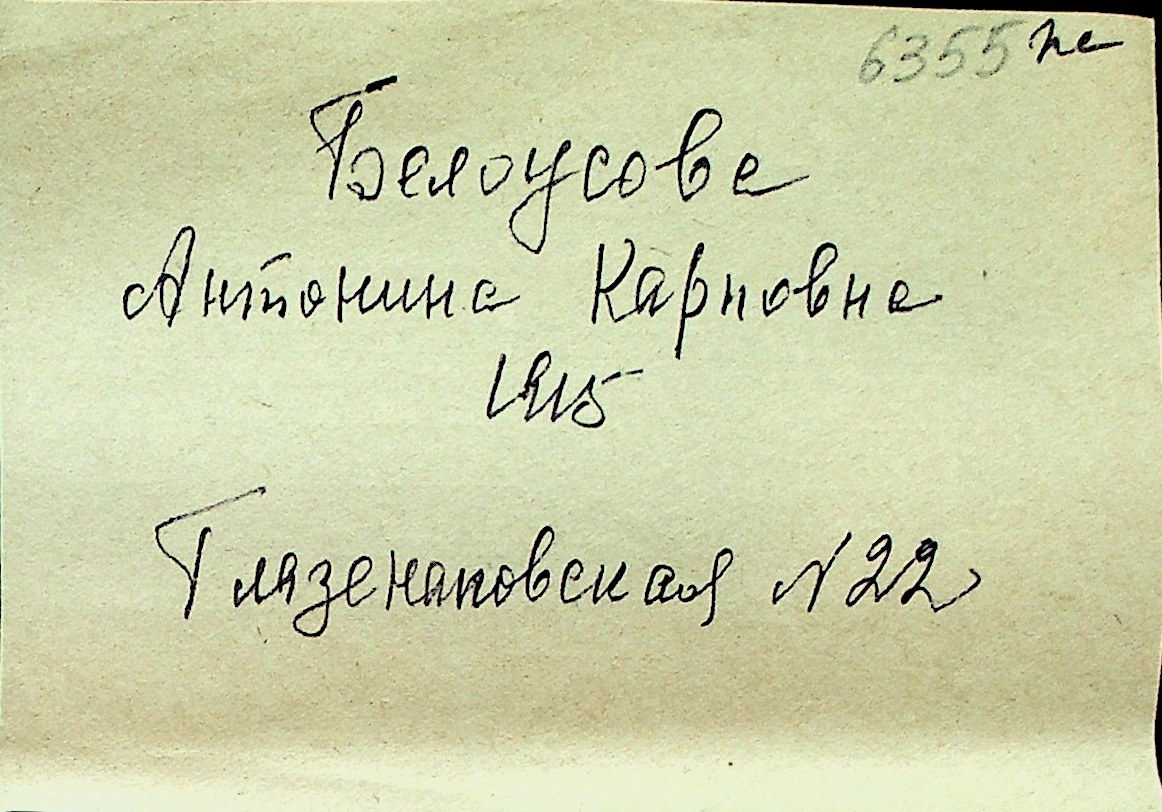 6355 пе
Белоусова
Антонина Карповна
1915
Глазенаповская N 22